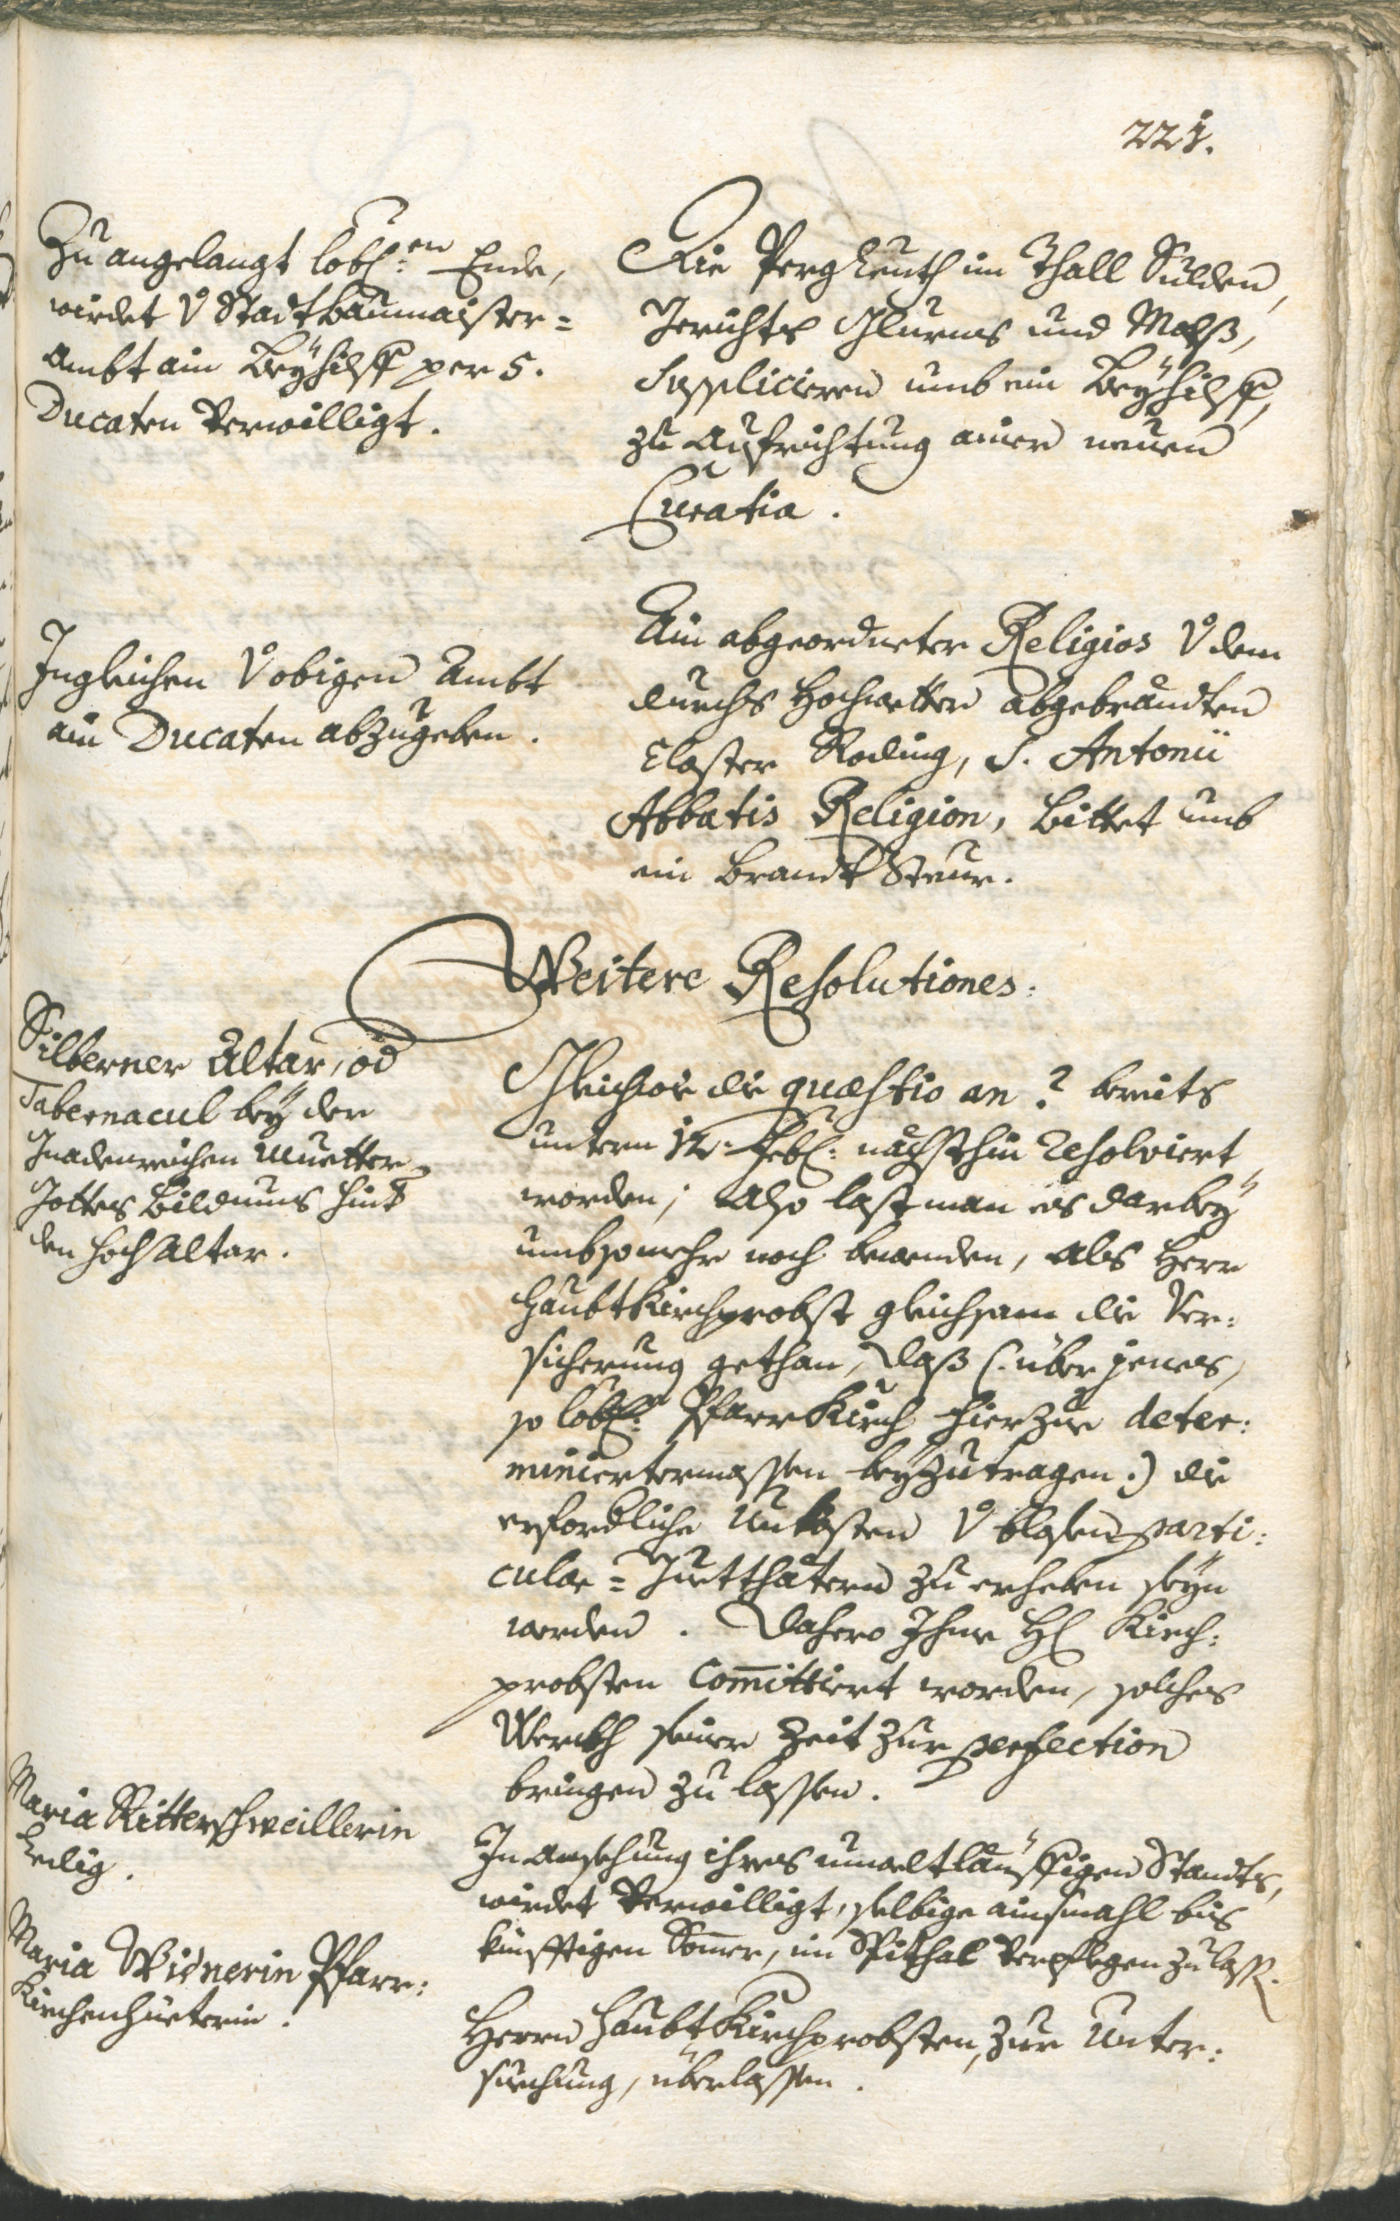 221.
Zu angelangt lobl:en Ende,
wirdet v Stadtbaumaister=
ambt ain Beÿhilff per 5.
Ducaten verwilligt.
Die Pergleuth im Thall Sulden,
Gerichts Glurns und Malß,
Supplicieren umb ein Beÿhilff,
zu Aufrichtung ainer neuen
Curatia.
Ingleichen v obigen Ambt
ain Ducaten abzugeben.
Ain abgeordneter Religios v dem
durchs Hochwetter abgebrandten
Closter Roding, S. Antonii
Abbatis Religion, bittet umb
ein Brandt Steur.
Weitere Resolutiones:
Silberner Altar, od
Tabernacul beÿ der
Gnadenreichen Muetter
Gottes Bildnuns hint
den Hoch Altar.
Gleichwie die quæstio an? bereits
untern 12: Febr: nächsthin resolviert
worden; Also last man es darbeÿ
umbsomehr noch bewenden, als Herr
Haubtkirchprobst gleichsam die Ver:
sicherung gethan, daß (: über jenes,
so lobl: Pfarr Kirch hierzue deter:
miniertermassen beÿzutragen:) die
erfordliche Unkosten v blosen parti:
cular= Guetthätern zu erheben seÿn
werden. Dahero Ihme H Kirch:
probsten committiert worden, solches
Werckh seiner Zeit zur perfection
bringen zu lassen.
Maria Ritterschweillerin
Ledig.
In Ansehung ihres umweltläuffigen Standts,
wirdet verwilligt, selbige ainsmahl bis
künfftigen Sommer, im Spithal verpflegen zu lass.
Maria Widnerin Pfarr:
Kirchenhüeterin.
Herrn Haubt Kirchprobsten, zur Unter:
suchung, überlassen.